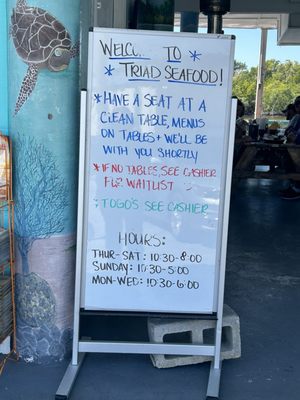 WELCOME TO
* TRIAD SEAFOOD! *
* HAVE A SEAT AT A
CLEAN TABLE, MENUS
ON TABLES + WE'LL BE
WITH YOU SHORTLY
* IF NO TABLES, SEE CASHIER
FOR WAITLIST
* TOGO'S SEE CASHIER
HOURS:
THUR-SAT: 10:30-8:00
SUNDAY: 10:30-5:00
MON-WED: 10:30-6:00